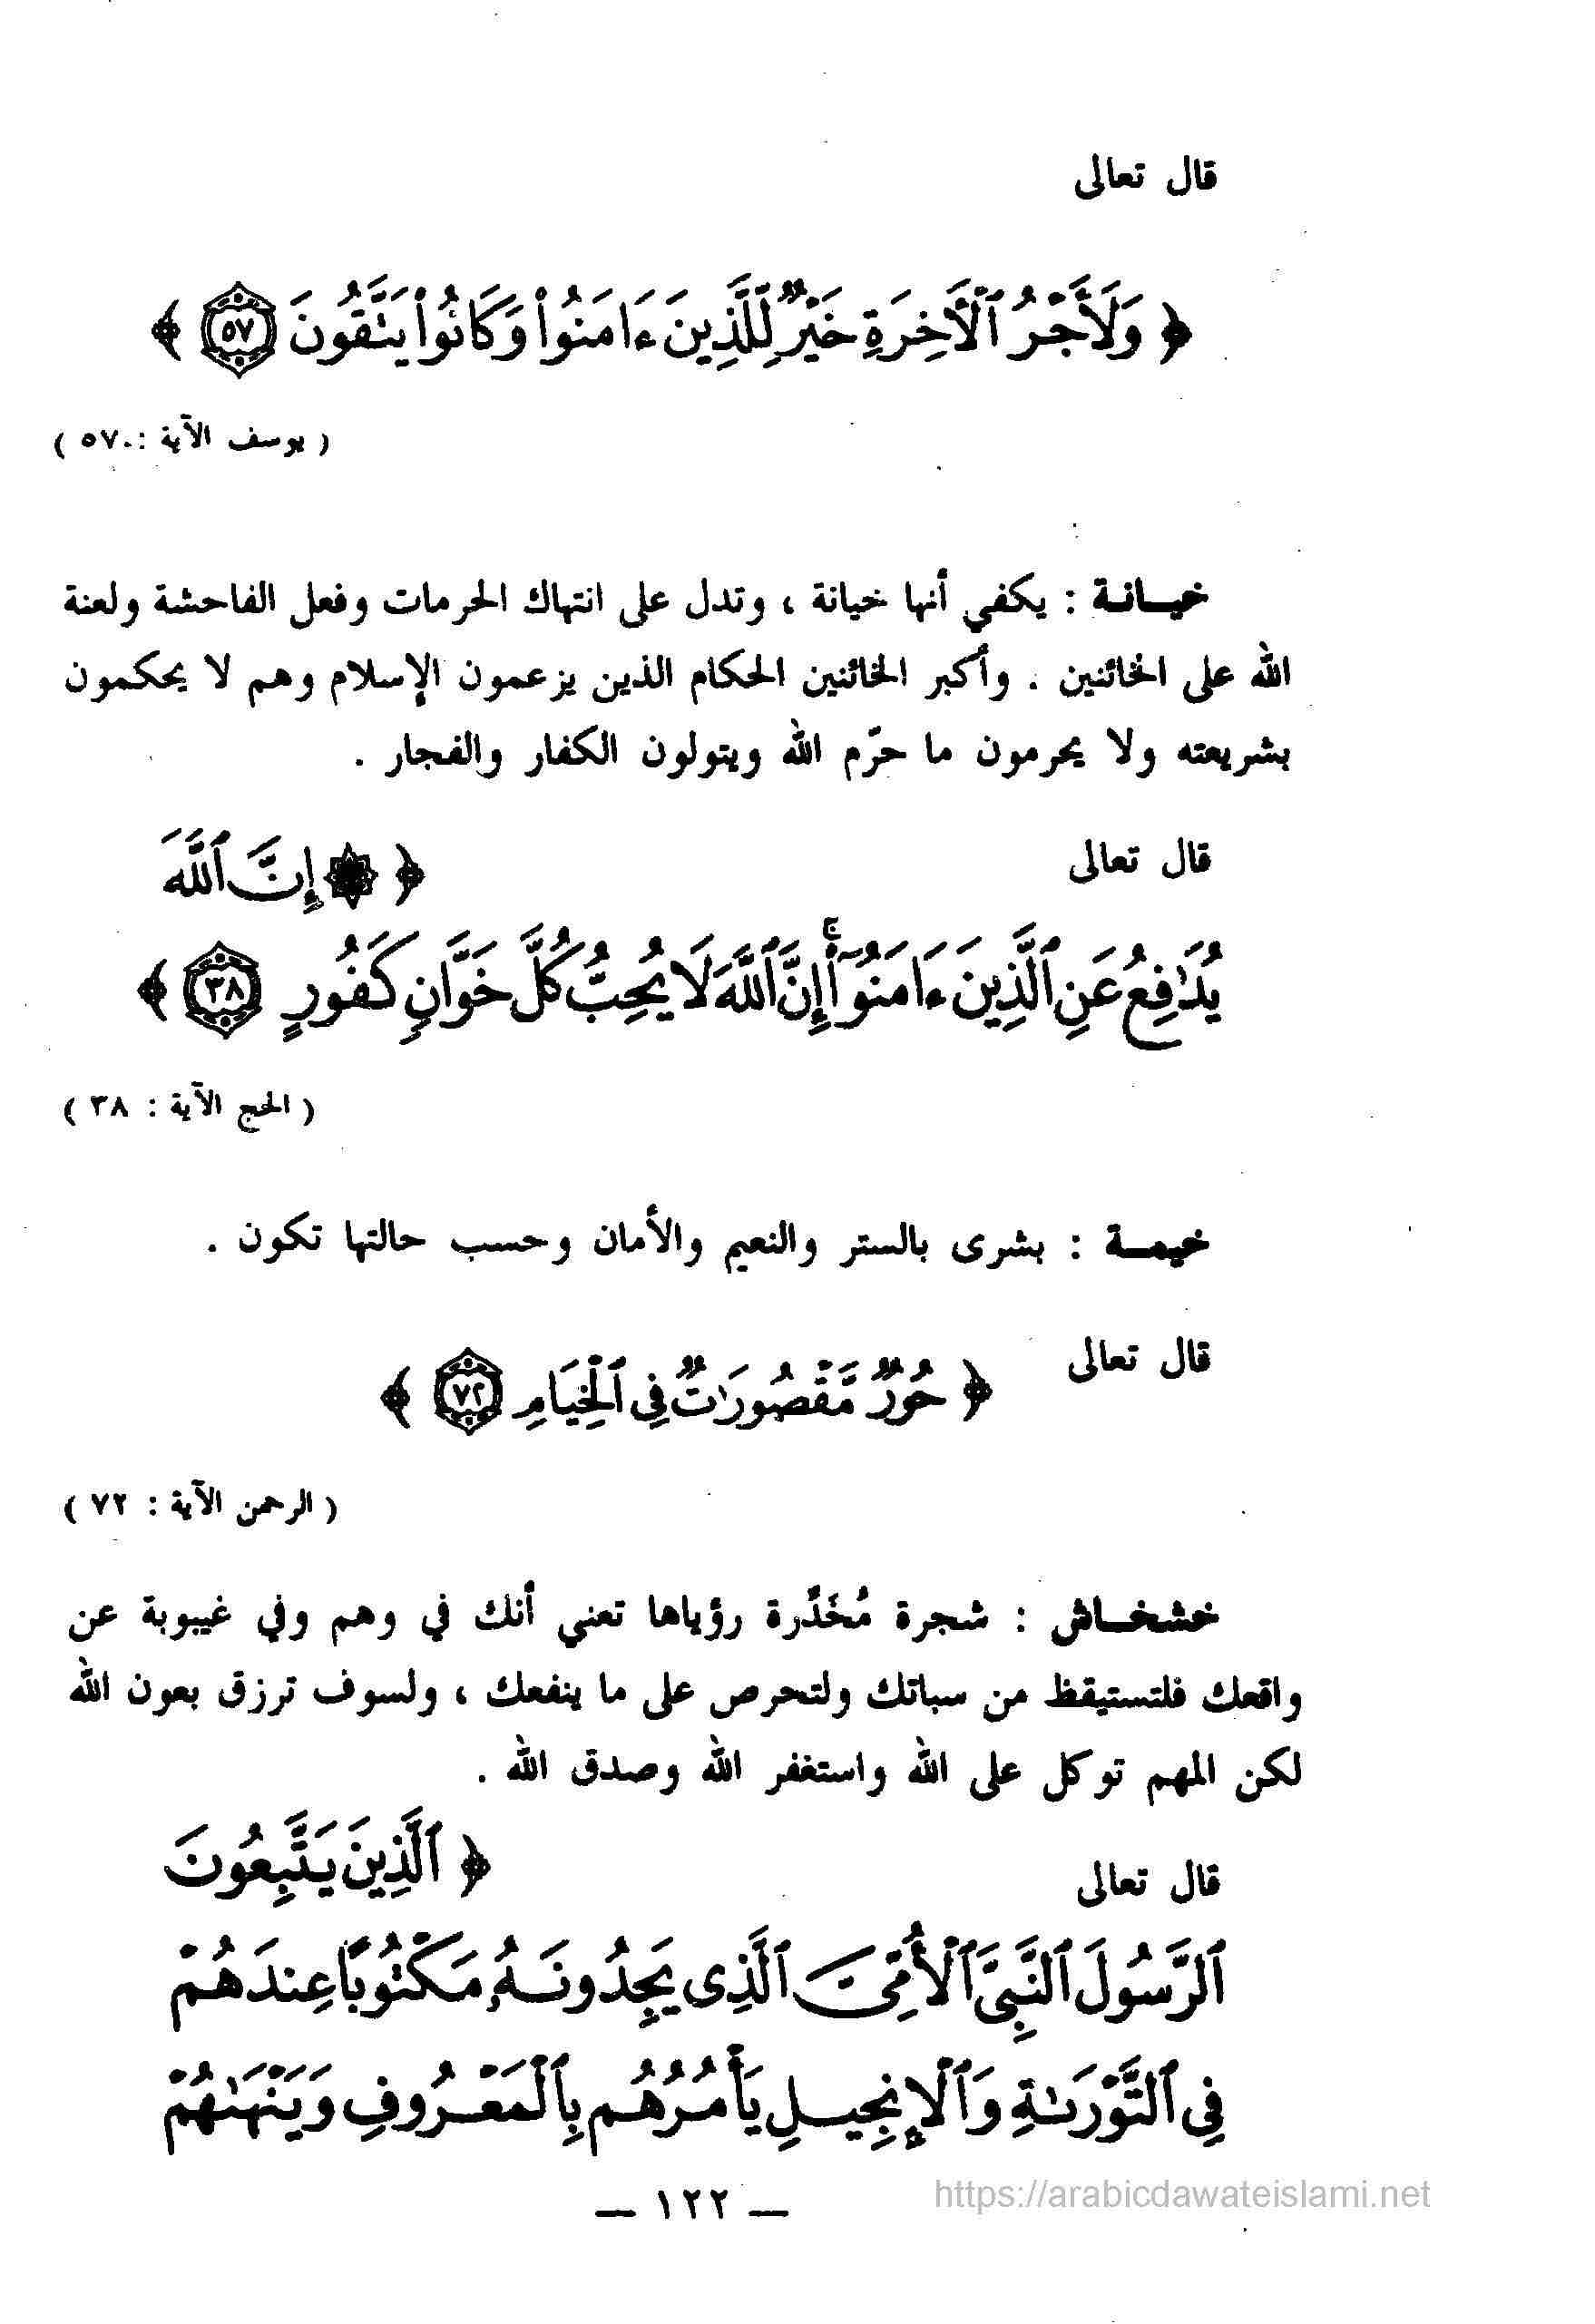 قال تعالى
﴿ وَلَأَجْرُ ٱلْأَخِرَةِ خَيْرٌ لِّلَّذِينَ ءَامَنُوا۟ وَكَانُوا۟ يَتَّقُونَ ٥٧ ﴾
( يوسف الآية : ٥٧ )
خيـانـة : يكفي أنها خيانة ، وتدل على انتهاك الحرمات وفعل الفاحشة ولعنة
الله على الخائنين . وأكبر الخائنين الحكام الذين يزعمون الإسلام وهم لا يحكمون
بشريعته ولا يحرمون ما حرّم الله ويتولون الكفار والفجار .
قال تعالى ﴿ ۞ إِنَّ ٱللَّهَ
يُدَٰفِعُ عَنِ ٱلَّذِينَ ءَامَنُوٓا۟ۚ إِنَّ ٱللَّهَ لَا يُحِبُّ كُلَّ خَوَّانٍ كَفُورٍ ٣٨ ﴾
( الحج الآية : ٣٨ )
خيمـــة : بشرى بالستر والنعيم والأمان وحسب حالتها تكون .
قال تعالى ﴿ حُورٌ مَّقْصُورَٰتٌ فِى ٱلْخِيَامِ ٧٢ ﴾
( الرحمن الآية : ٧٢ )
خشخـــاش : شجرة مُخَدِّرة رؤياها تعني أنك في وهم وفي غيبوبة عن
واقعك فلتستيقظ من سباتك ولتحرص على ما ينفعك ، ولسوف ترزق بعون الله
لكن المهم توكل على الله واستغفر الله وصدق الله .
قال تعالى ﴿ ٱلَّذِينَ يَتَّبِعُونَ
ٱلرَّسُولَ ٱلنَّبِىَّ ٱلْأُمِّىَّ ٱلَّذِى يَجِدُونَهُۥ مَكْتُوبًا عِندَهُمْ
فِى ٱلتَّوْرَىٰةِ وَٱلْإِنجِيلِ يَأْمُرُهُم بِٱلْمَعْرُوفِ وَيَنْهَىٰهُمْ
— ١٢٢ —
https://arabicdawateislami.net